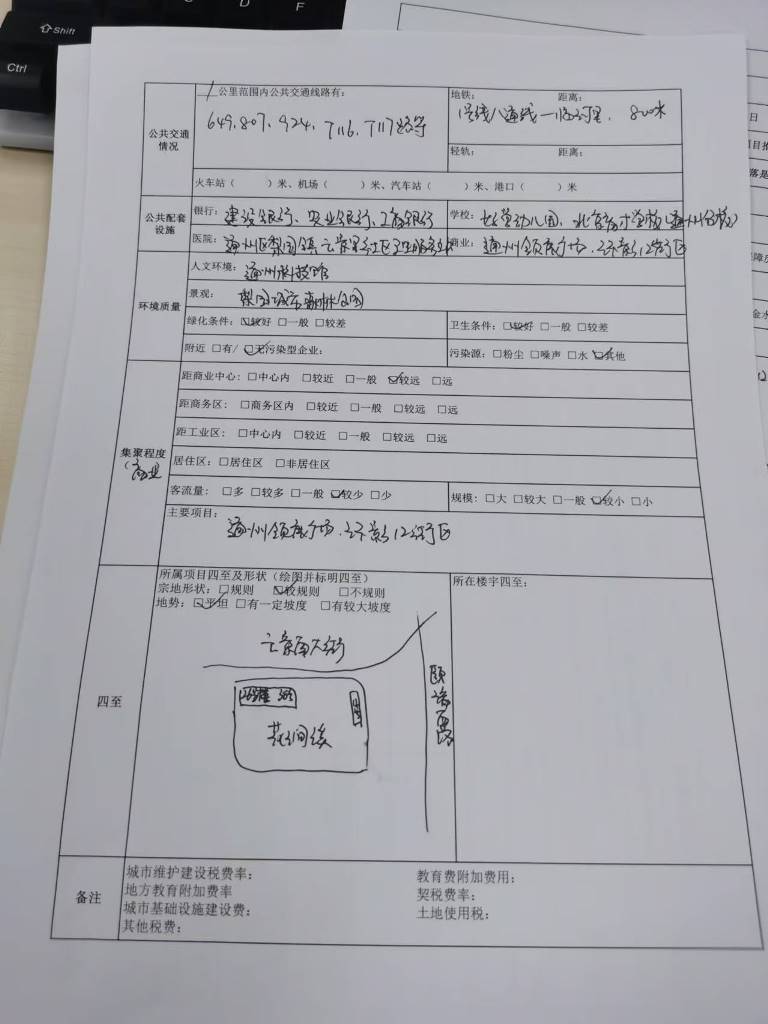 Shift
Ctrl
D
F
公共交通情况
1公里范围内公共交通线路有:
649.807.924. T116. T117路等
地铁: 距离:
1号线八通线—临河里. 800米
轻轨: 距离:
火车站( )米、机场( )米、汽车站( )米、港口( )米
公共配套设施
银行: 建设银行、农业银行、工商银行
学校:
医院: 通州区梨园镇云景里社区卫生服务站
商业: 通州领展广场.
环境质量
人文环境: 通州科技馆
景观: 梨园城市森林公园
绿化条件: ☑较好 □一般 □较差
卫生条件: ☑较好 □一般 □较差
附近 □有/ ☑无污染型企业:
污染源: □粉尘 □噪声 □水 ☑其他
集聚程度
(商业
距商业中心: □中心内 □较近 □一般 ☑较远 □远
距商务区: □商务区内 □较近 □一般 □较远 □远
距工业区: □中心内 □较近 □一般 □较远 □远
居住区: □居住区 □非居住区
客流量: □多 □较多 □一般 ☑较少 □少
规模: □大 □较大 □一般 ☑较小 □小
主要项目:
通州领展广场.
四至
所属项目四至及形状(绘图并标明四至)
宗地形状: □规则 ☑较规则 □不规则
地势: ☑平坦 □有一定坡度 □有较大坡度
所在楼宇四至:
云景南大街
颐瑞西路
备注
城市维护建设税费率:
教育费附加费用:
地方教育附加费率
契税费率:
城市基础设施建设费:
土地使用税:
其他税费: